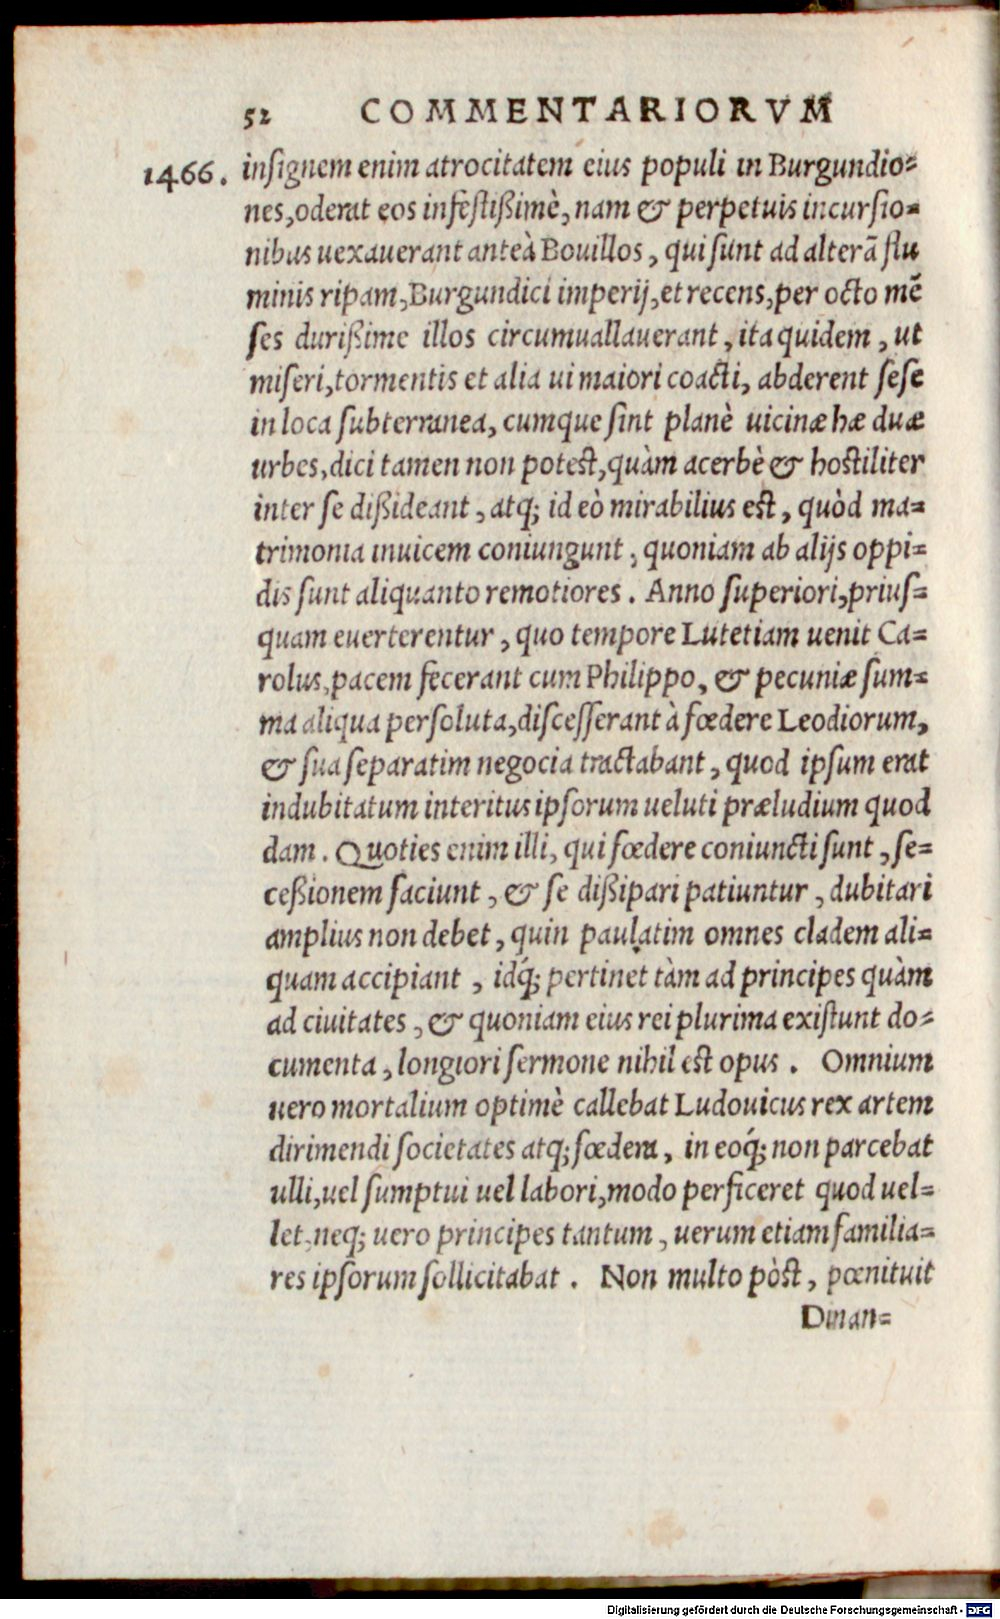 52 COMMENTARIORVM
1466. insignem enim atrocitatem eius populi in Burgundio=
nes, oderat eos infestißimè, nam & perpetuis incursio=
nibus uexauerant anteà Bouillos, qui sunt ad alterā flu
minis ripam, Burgundici imperij, et recens, per octo mē
ses durißime illos circumuallauerant, ita quidem, ut
miseri, tormentis et alia ui maiori coacti, abderent sese
in loca subterranea, cumque sint planè uicinæ hæ duæ
urbes, dici tamen non potest, quàm acerbè & hostiliter
inter se dißideant, atq; id eò mirabilius est, quòd ma=
trimonia inuicem coniungunt, quoniam ab alijs oppi=
dis sunt aliquanto remotiores. Anno superiori, prius=
quam euerterentur, quo tempore Lutetiam uenit Ca=
rolus, pacem fecerant cum Philippo, & pecuniæ sum=
ma aliqua persoluta, discesserant à fœdere Leodiorum,
& sua separatim negocia tractabant, quod ipsum erat
indubitatum interitus ipsorum ueluti præludium quod
dam. Quoties enim illi, qui fœdere coniuncti sunt, se=
ceßionem faciunt, & se dißipari patiuntur, dubitari
amplius non debet, quin paulatim omnes cladem ali=
quam accipiant, idq́; pertinet tàm ad principes quàm
ad ciuitates, & quoniam eius rei plurima existunt do=
cumenta, longiori sermone nihil est opus. Omnium
uero mortalium optimè callebat Ludouicus rex artem
dirimendi societates atq; fœdera, in eoq́; non parcebat
ulli, uel sumptui uel labori, modo perficeret quod uel=
let, neq; uero principes tantum, uerum etiam familia=
res ipsorum sollicitabat. Non multo pòst, pœnituit
Dinan=
Digitalisierung gefördert durch die Deutsche Forschungsgemeinschaft - DFG